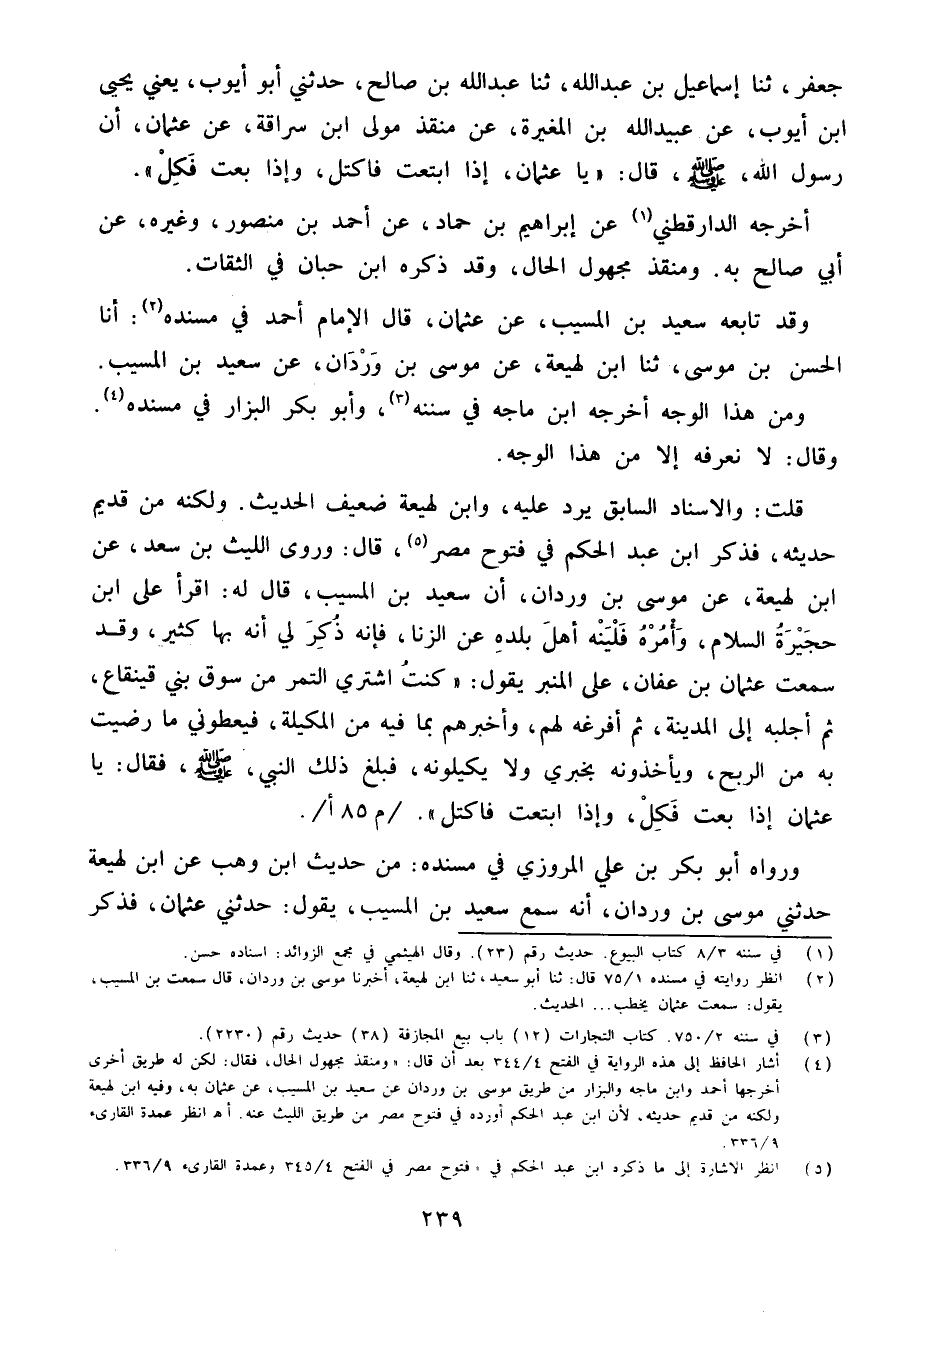 جعفر، ثنا إسماعيل بن عبدالله، ثنا عبدالله بن صالح، حدثني أبو أيوب، يعني يحيى
ابن أيوب، عن عبيدالله بن المغيرة، عن منقذ مولى ابن سراقة، عن عثمان، أن
رسول الله، ﷺ، قال: «يا عثمان، إذا ابتعت فاكتل، وإذا بعت فَكِلْ».
أخرجه الدارقطني(١) عن إبراهيم بن حماد، عن أحمد بن منصور، وغيره، عن
أبي صالح به. ومنقذ مجهول الحال، وقد ذكره ابن حبان في الثقات.
وقد تابعه سعيد بن المسيب، عن عثمان، قال الإمام أحمد في مسنده(٢): أنا
الحسن بن موسى، ثنا ابن لهيعة، عن موسى بن وَرْدَان، عن سعيد بن المسيب.
ومن هذا الوجه أخرجه ابن ماجه في سننه(٣)، وأبو بكر البزار في مسنده(٤).
وقال: لا نعرفه إلا من هذا الوجه.
قلت: والاسناد السابق يرد عليه، وابن لهيعة ضعيف الحديث. ولكنه من قديم
حديثه، فذكر ابن عبد الحكم في فتوح مصر(٥)، قال: وروى الليث بن سعد، عن
ابن لهيعة، عن موسى بن وردان، أن سعيد بن المسيب، قال له: اقرأ على ابن
حجَيْرَةُ السلام، وَأْمُرْهُ فَلْيَنْه أهلَ بلدهِ عن الزنا، فإنه ذُكِرَ لي أنه بها كثير، وقد
سمعت عثمان بن عفان، على المنبر يقول: «كنتُ اشتري التمر من سوق بني قينقاع،
ثم أجلبه إلى المدينة، ثم أفرغه لهم، وأخبرهم بما فيه من المكيلة، فيعطوني ما رضيت
به من الربح، ويأخذونه بخبري ولا يكيلونه، فبلغ ذلك النبي، ﷺ، فقال: يا
عثمان إذا بعت فَكِلْ، وإذا ابتعت فاكتل». /م ٨٥ أ/.
ورواه أبو بكر بن علي المروزي في مسنده: من حديث ابن وهب عن ابن لهيعة
حدثني موسى بن وردان، أنه سمع سعيد بن المسيب، يقول: حدثني عثمان، فذكر
(١) في سننه ٨/٣ كتاب البيوع. حديث رقم (٢٣). وقال الهيثمي في مجمع الزوائد: اسناده حسن.
(٢) انظر روايته في مسنده ٧٥/١ قال: ثنا أبو سعيد، ثنا ابن لهيعة، أخبرنا موسى بن وردان، قال سمعت بن المسيب،
يقول: سمعت عثمان يخطب... الحديث.
(٣) في سننه ٧٥٠/٢. كتاب التجارات (١٢) باب بيع المجازفة (٣٨) حديث رقم (٢٢٣٠).
(٤) أشار الحافظ إلى هذه الرواية في الفتح ٣٤٤/٤ بعد أن قال: «ومنقذ مجهول الحال، فقال: لكن له طريق أخرى
أخرجها أحمد وابن ماجه والبزار من طريق موسى بن وردان عن سعيد بن المسيب، عن عثمان به، وفيه ابن لهيعة
ولكنه من قديم حديثه. لأن ابن عبد الحكم أورده في فتوح مصر من طريق الليث عنه. أ هـ انظر عمدة القارىء
٣٣٦/٩.
(٥) انظر الاشارة إلى ما ذكره ابن عبد الحكم في «فتوح مصر في الفتح ٣٤٥/٤ وعمدة القارىء ٣٣٦/٩.
٢٣٩